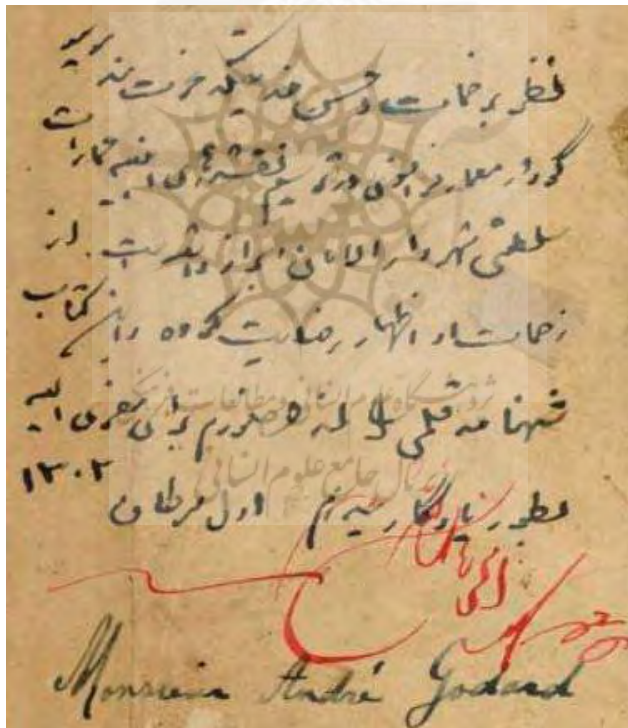 نظر بزحمات و حسن خدمتیکه حضرت موسیو
گودار معمار فرانسوی در ترسیم نقشه‌های ابنیه عمارات
سلطنتی شهر دارالامان ابراز داشت از
زحمات او اظهار رضایت کرده و این کتاب
شهنامه قلمی را که
بطور یادگار میدهم اول سرطان ۱۳۰۲
پژوهشگاه علوم انسانی و مطالعات فرهنگی
پرتال جامع علوم انسانی
Monsieur André Godard